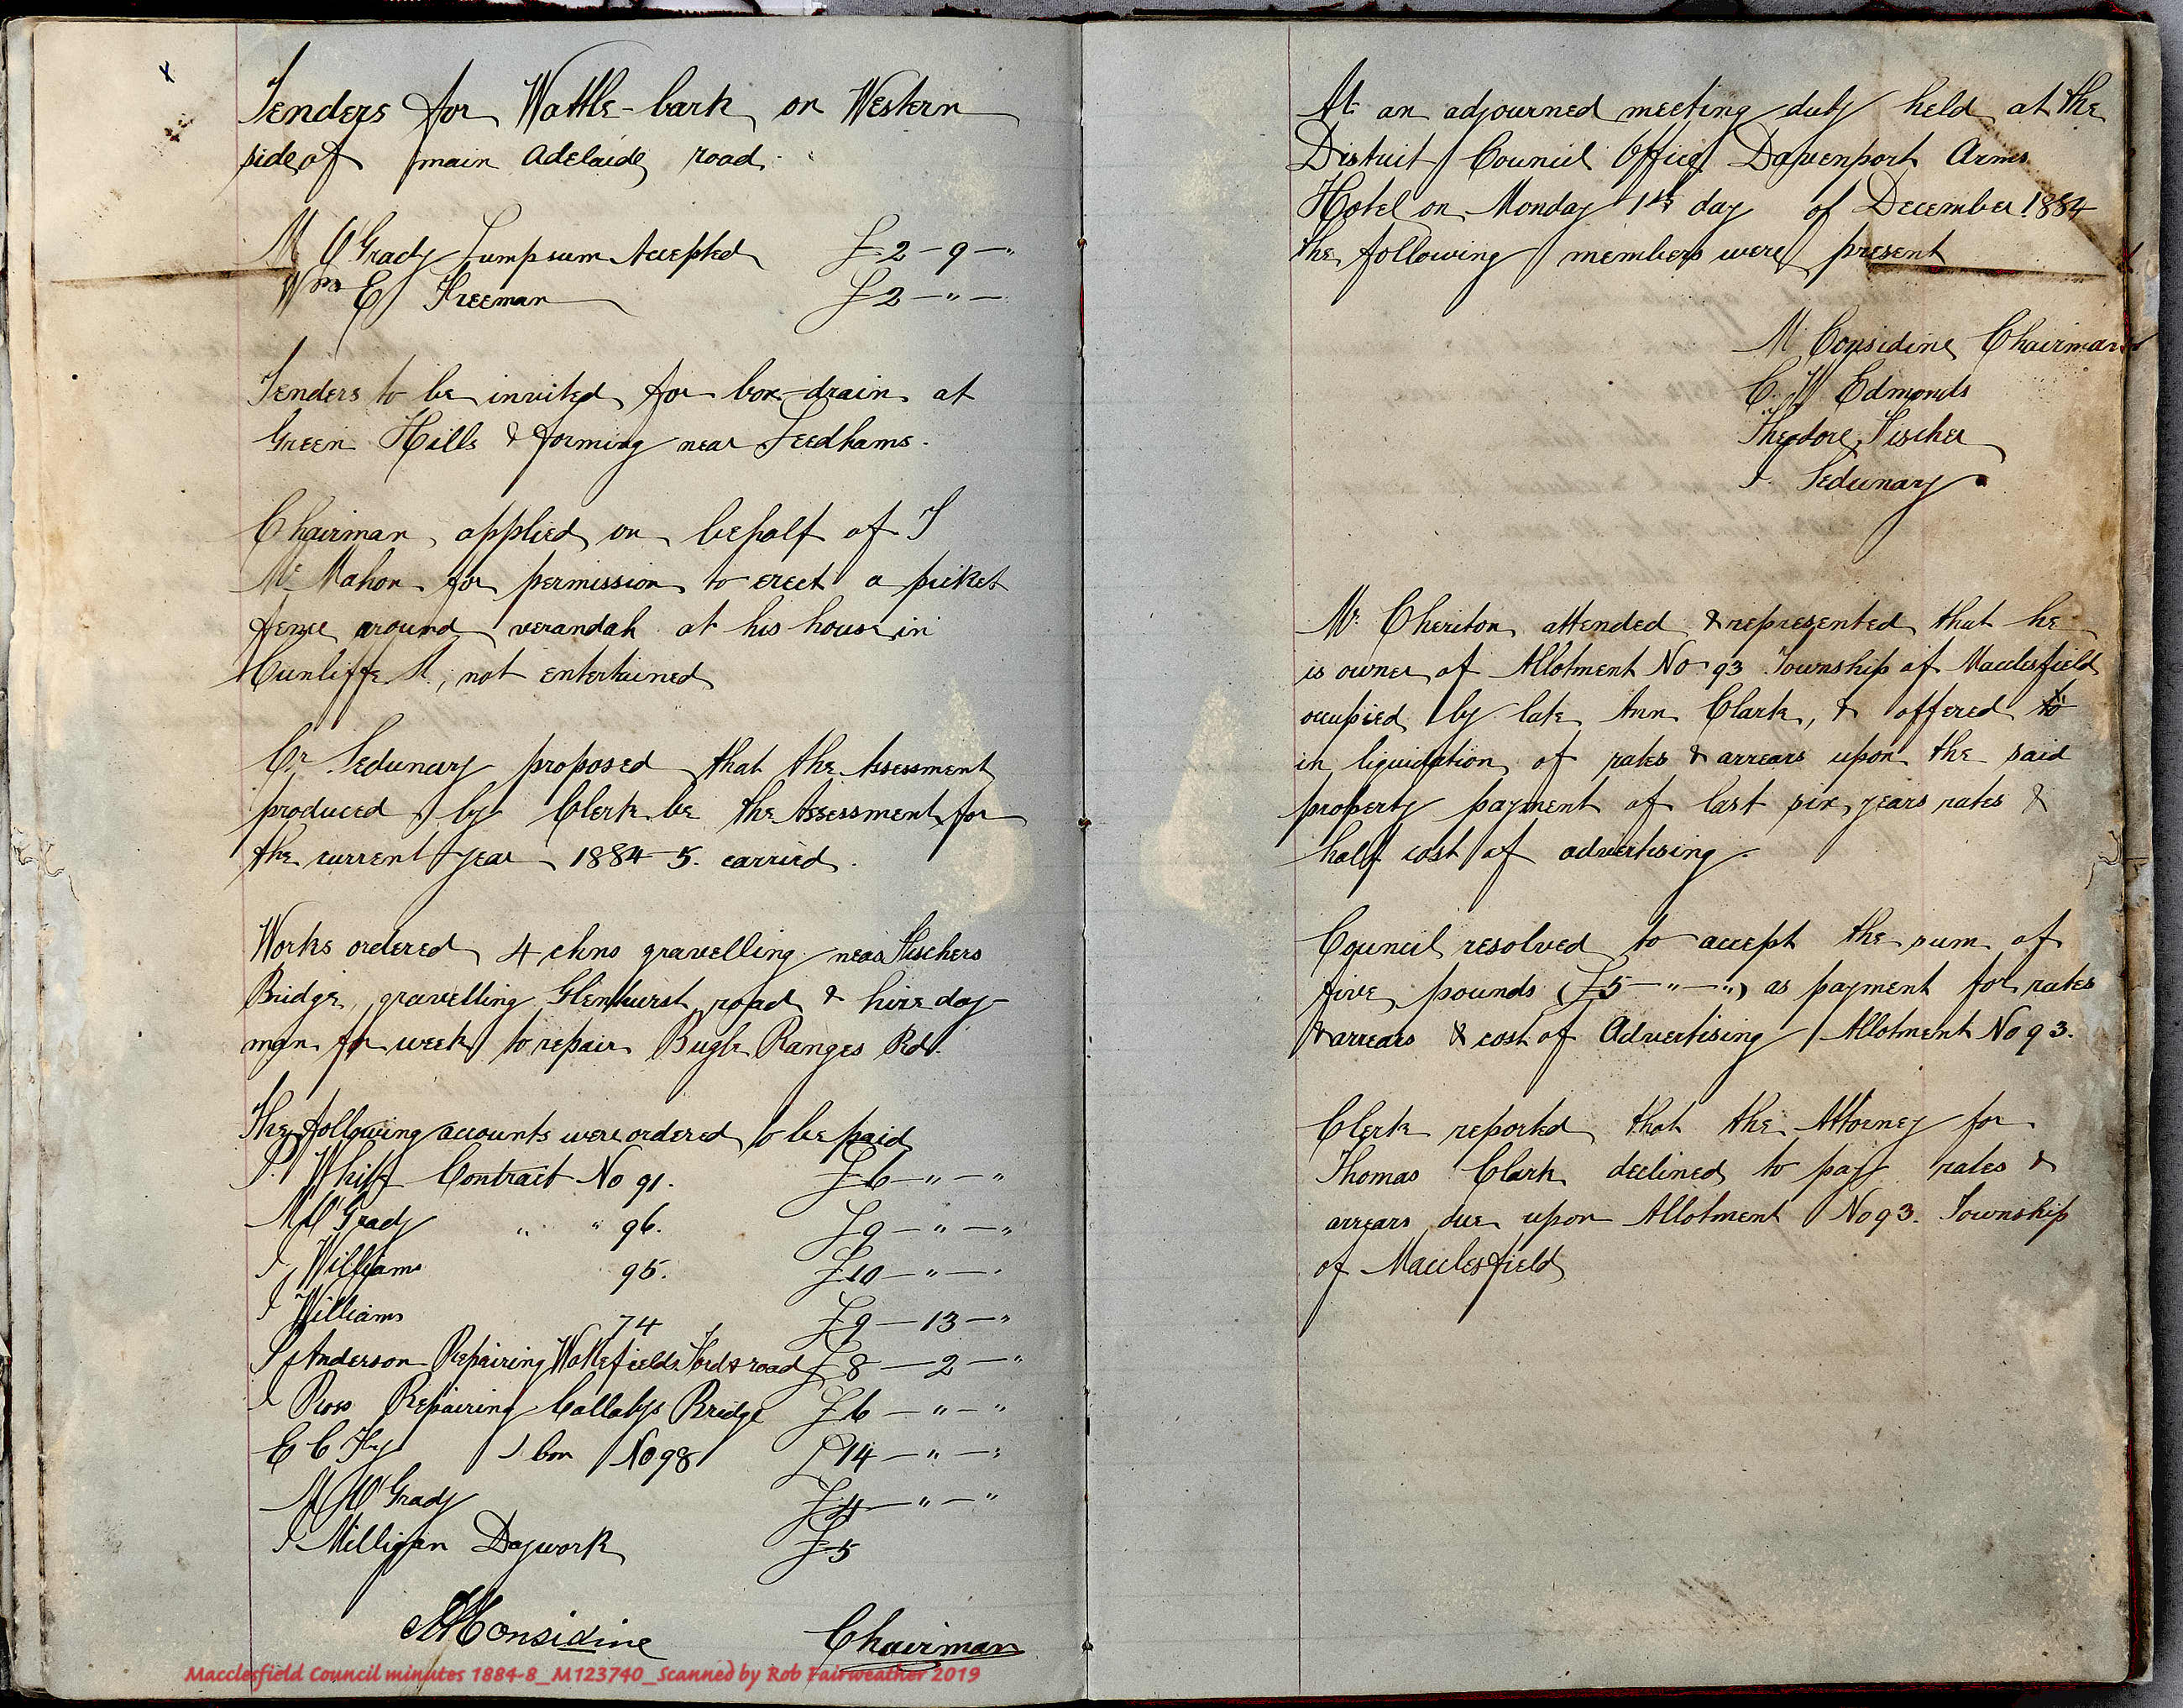 Tenders for Wattle-bark on Western
side of main Adelaide road.
M O'Grady Lump sum Accepted £2-9-"
Wm E Freeman £2-"-
Tenders to be invited for box-drain at
Green Hills & forming near Leedhams.
Chairman applied on behalf of T
McMahon for permission to erect a picket
fence around verandah at his house in
Cunliffe St, not entertained
Cr. Sedunary proposed that the Assessment
produced by Clerk be the Assessment for
the current year 1884-5. carried.
Works ordered 4 chns gravelling near Fischers
Bridge, gravelling Glenhurst road & hire day
man for week to repair Bugle Ranges Rd.
The following accounts were ordered to be paid
Whiff Contract No 91. £6-"-"
M O'Grady " " 96. £9-"-"
Williams 95. £10-"-"
Williams 74 £9-13-"
Anderson Repairing Wakefields Ford & road £8-2-"
Ross Repairing Gallabys Bridge £6-"-"
E C Fry No 98 £14-"-"
M O'Grady £4-"-"
Milligan Daywork £5
M Considine Chairman
Macclesfield Council minutes 1884-8_M123740_Scanned by Rob Fairweather 2019
At an adjourned meeting duly held at the
District Council Office Davenport Arms
Hotel on Monday 1st day of December 1884
the following members were present
M Considine Chairman
C. W Edmonds
Theodore Fischer
Sedunary
Mr Cheriton attended & represented that he
is owner of Allotment No 93 Township of Macclesfield
occupied by late Ann Clark, & offered to
in liquidation of rates & arrears upon the said
property payment of last six years rates &
half cost of advertising.
Council resolved to accept the sum of
five pounds (£5-"-") as payment for rates
& arrears & cost of Advertising Allotment No 93.
Clerk reported that the Attorney for
Thomas Clark declined to pay rates &
arrears due upon Allotment No 93. Township
of Macclesfield